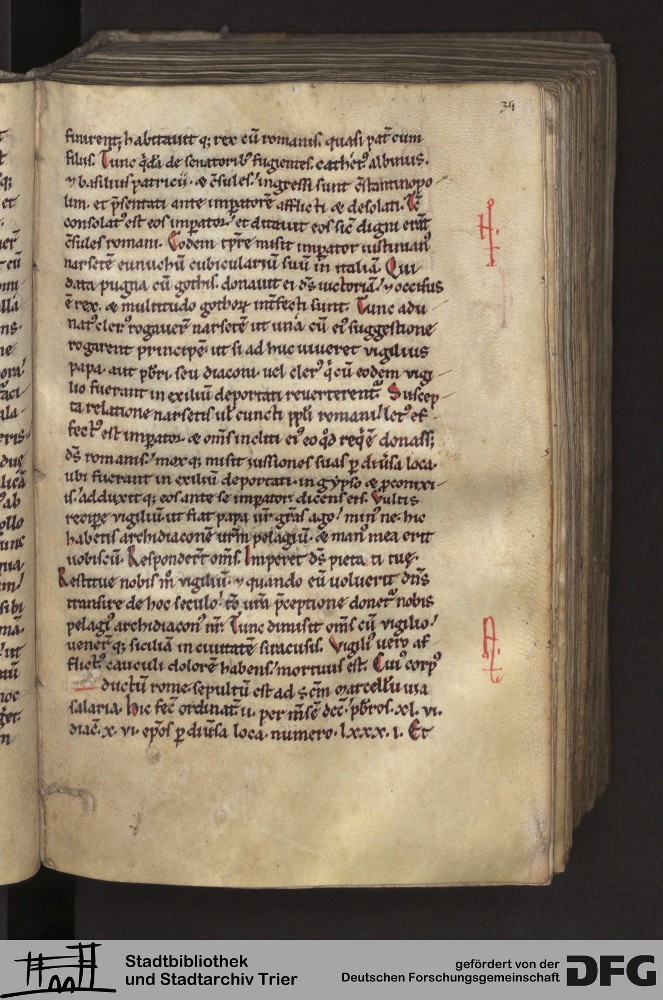 34
finirent; habitauit q; rex cū romanis. quasi pat̄ cum
filiis. Tunc q̄dā de senatorib; fugientes. cathet᷒ albinus.
⁊ basilius patricii. & c̄sules. ingressi sunt c̄stantinopo
lim. et p̄sentati ante imp̄atorē afflicti & desolati. Tc̄
consolat᷒ est eos imp̄ator. et ditauit eos sic̄ digni erāt
c̄sules romani. Eodem tp̄re misit imp̄ator iustinian᷒
narsetē eunuchū cubiculariū suū in italiā. Qui
data pugna cū gothis. donauit ei d̄s uictoriā. ⁊ occisus
ē rex. & multitudo gothoꝝ int̄fecti sunt. Tunc adu
nat᷒ cler᷒ rogauer̄ narsetē ut una cū ei᷒ suggestione
rogarent principē. ut si ad huc uiueret vigilius
papa. aut p̄bri. seu diaconi. uel cler᷒ q̄ cū eodem vigi
lio fuerant in exiliū deportati reuerterent᷒. Suscep
ta relatione narsetis ul̄ cuncti pp̄li romani. let᷒ ef
fect᷒ est imp̄ator. & om̄s incliti ei᷒ eo qd̄ req̄ē donass;
d̄s romanis. mox q; misit iussiones suas ꝑ diu̅sa loca.
ubi fuerant in exiliū deportati. in gypso & p̄conixi
is. adduxit q; eos ante se imp̄ator dicens eis. Vultis
recip̄e vigiliū ut fiat papa ur̄. gr̄as ago. min᷒ ne. hic
habetis archidiaconē ur̄m pelagiū. & man᷒ mea erit
uobiscū. Responder̄t om̄s. Imperet d̄s pieta ti tuę.
Restitue nobis m̊ vigiliū. ⁊ quando eū uoluerit dn̄s
transire de hoc seculo. tc̄ ur̄a p̄ceptione donet᷒ nobis
pelagi᷒ archidiacon᷒ nr̄. Tunc dimisit om̄s cū vigilio.
uener̄t q; siciliā in ciuitatē siracusis. Vigili᷒ uero af
flict᷒ cauculi dolorē habens. mortuus est. Cui᷒ corp᷒
ductū rome. sepultū est ad s̄cm marcellū uia
salaria. Hic fec̄ ordinat̄. ii. per m̄sē dec̄. p̄bros. xl. vi.
diac̄. x. vi. ep̄os ꝑ diu̅sa loca. numero. lxxx. i. Et
Stadtbibliothek
und Stadtarchiv Trier
gefördert von der
Deutschen Forschungsgemeinschaft
DFG